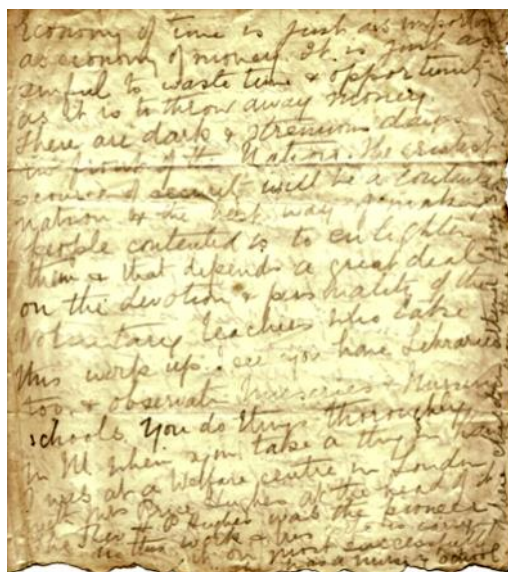 Economy of time is just as important
as economy of money. It is just as
sinful to waste time & opportunity
as it is to throw away money.
There are dark & strenuous days
in front of the Nation. The greatest
source of security will be a contented
nation & the best way of making
people contented is to enlighten
them & that depends a great deal
on the devotion & personality of the
Voluntary teachers who take
this work up. see you have Libraries
too, & observation Nurseries & Nursing
schools. You do things thoroughly
in when you take a thing in
I was at a Welfare centre in London
with Mrs Price Hughes at the head of it
The Rev H P Hughes was the pioneer
in this work & his is carry
it on most successfully
as a nursery school